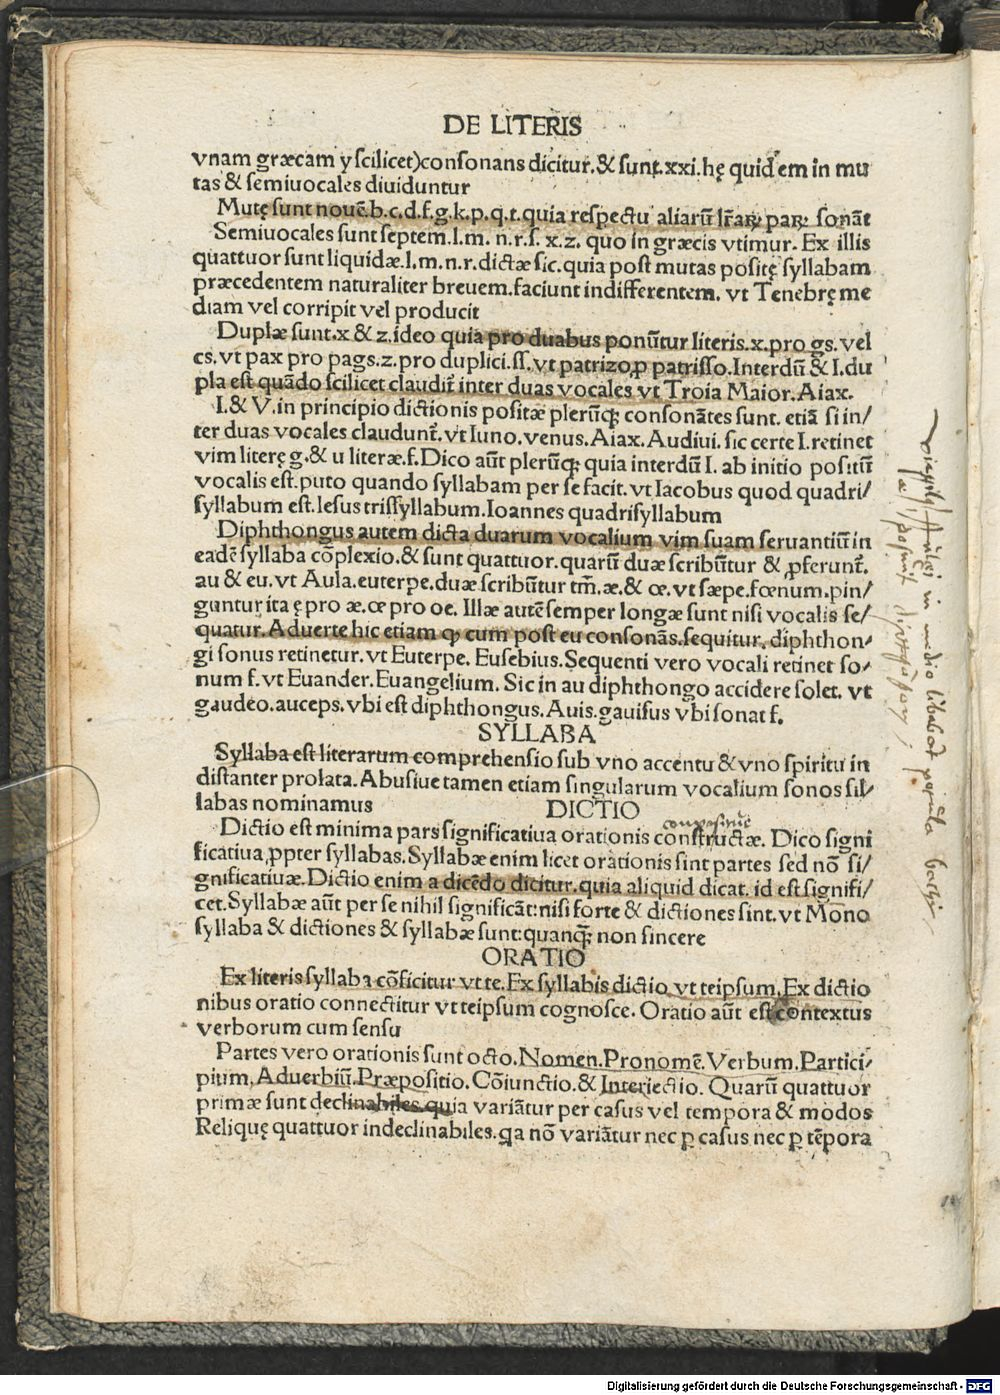 DE LITERIS
vnam græcam y scilicet)consonans dicitur.& sunt.xxi.hę quidem in mu
tas & semiuocales diuiduntur
Mutę sunt nouē.b.c.d.f.g.k.p.q.t.quia respectu aliarū lr̄aꝝ paꝝ sonāt
Semiuocales sunt septem.l.m. n.r.s. x.z. quo in græcis vtimur. Ex illis
quattuor sunt liquidæ.l.m.n.r.dictæ sic.quia post mutas positę syllabam
præcedentem naturaliter breuem.faciunt indifferentem. vt Tenebrę me
diam vel corripit vel producit
Duplæ sunt.x & z.ideo quia pro duabus ponūtur literis.x.pro gs.vel
cs.vt pax pro pags.z.pro duplici.ss.vt patrizo,ꝓ patrisso.Interdū & I.du
pla est quādo scilicet claudit᷑ inter duas vocales vt Troia Maior.Aiax.
I.& V.in principio dictionis positæ plerūꝗ consonātes sunt. etiā si in/
ter duas vocales claudunt᷑.vt Iuno.venus.Aiax.Audiui.sic certe I.retinet
vim literę g.& u literæ.f.Dico aūt plerūꝗ quia interdū I. ab initio positū
vocalis est.puto quando syllabam per se facit.vt Iacobus quod quadri/
syllabum est.Iesus trissyllabum.Ioannes quadrisyllabum
Diphthongus autem dicta duarum vocalium vim suam seruantiū in
eadē syllaba cōplexio.& sunt quattuor.quarū duæ scribūtur & ꝓferunt᷑.
au & eu.vt Aula.euterpe.duæ scribūtur tm̄.æ.& œ.vt sæpe.fœnum.pin/
guntur ita ę pro æ.œ pro oe. Illæ autē semper longæ sunt nisi vocalis se/
quatur.Aduerte hic etiam ꝙ cum post eu consonās.sequitur.diphthon/
gi sonus retinetur.vt Euterpe. Eusebius.Sequenti vero vocali retinet so/
num f.vt Euander.Euangelium.Sic in au diphthongo accidere solet. vt
gaudeo.auceps.vbi est diphthongus.Auis.gauisus vbi sonat f.
SYLLABA
Syllaba est literarum comprehensio sub vno accentu & vno spiritu in
distanter prolata.Abusiue tamen etiam singularum vocalium sonos sil/
labas nominamus
DICTIO
compositiue
Dictio est minima pars significatiua orationis constructæ. Dico signi
ficatiua,ꝓpter syllabas.Syllabæ enim licet orationis sint partes sed nō si/
gnificatiuæ.Dictio enim a dicēdo dicitur.quia aliquid dicat.id est signifi/
cet.Syllabæ aūt per se nihil significāt:nisi forte & dictiones sint.vt Mono
syllaba & dictiones & syllabæ sunt:quanꝗ̄ non sincere
ORATIO
Ex literis syllaba cōficitur vt te.Ex syllabis dictio vt teipsum.Ex dictio
nibus oratio connectitur vt teipsum cognosce. Oratio aūt est contextus
verborum cum sensu
Partes vero orationis sunt octo.Nomen.Pronomē.Verbum.Partici/
pium.Aduerbiū.Præpositio.Cōiunctio.& Interiectio. Quarū quattuor
primæ sunt declinabiles.quia variātur per casus vel tempora & modos
Reliquę quattuor indeclinabiles.qa nō variātur nec ꝑ casus nec ꝑ tēpora
in medio
Digitalisierung gefördert durch die Deutsche Forschungsgemeinschaft - DFG